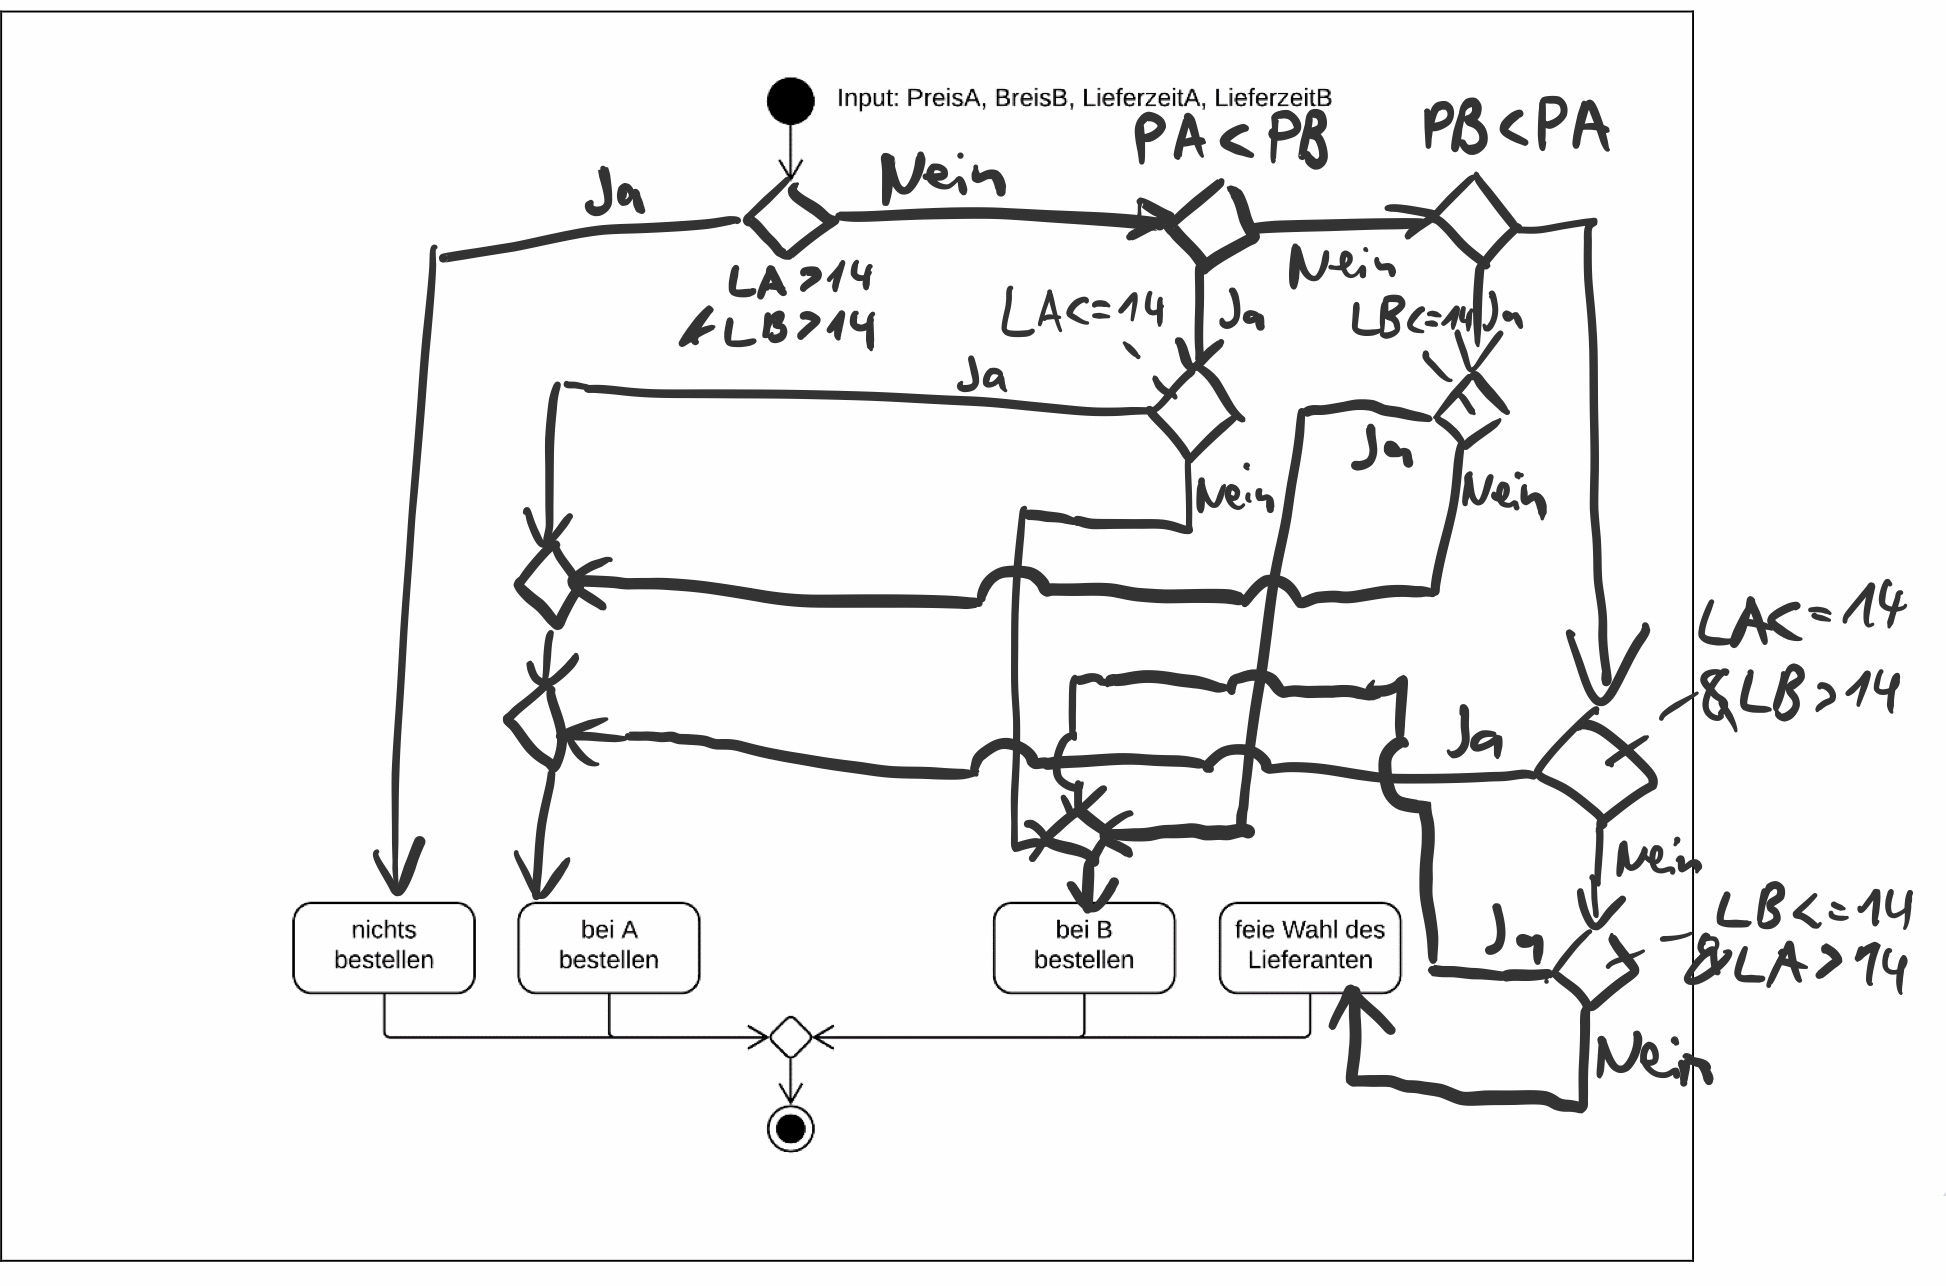 Input: PreisA, BreisB, LieferzeitA, LieferzeitB
PA < PB
PB < PA
Ja
Nein
Nein
LA > 14
& LB > 14
LA <= 14
Ja
LB <= 14
Ja
Ja
Ja
Nein
Nein
LA <= 14
& LB > 14
Ja
Nein
LB <= 14
& LA > 14
Ja
nichts
bestellen
bei A
bestellen
bei B
bestellen
feie Wahl des
Lieferanten
Nein